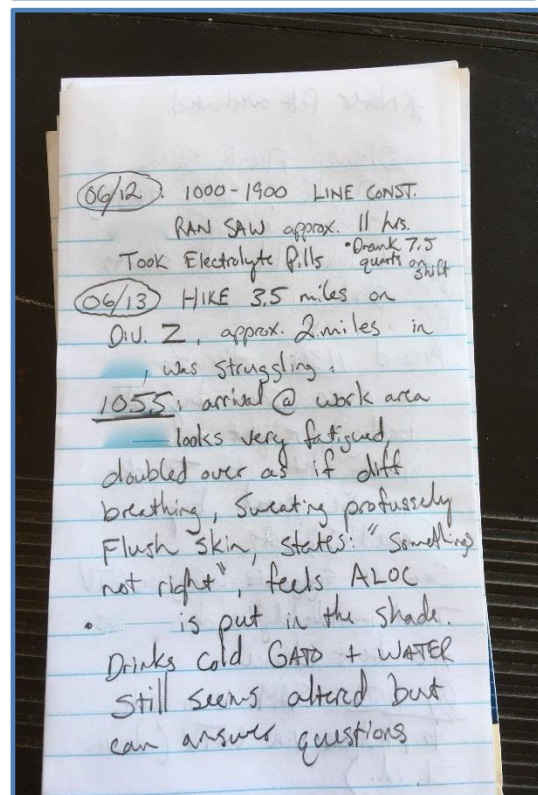 06/12. 1000-1900 LINE CONST.
RAN SAW approx. 11 hrs.
Took Electrolyte Pills • Drank 7.5 quarts on shift
06/13 HIKE 3.5 miles on
DIV. Z, approx. 2 miles in
, was struggling.
1055: arrival @ work area
looks very fatigued,
doubled over as if diff
breathing, Sweating profussely
Flush Skin, states: "Somethings
not right", feels ALOC
• is put in the shade.
Drinks Cold GATO + WATER
Still seems altered but
can answer questions